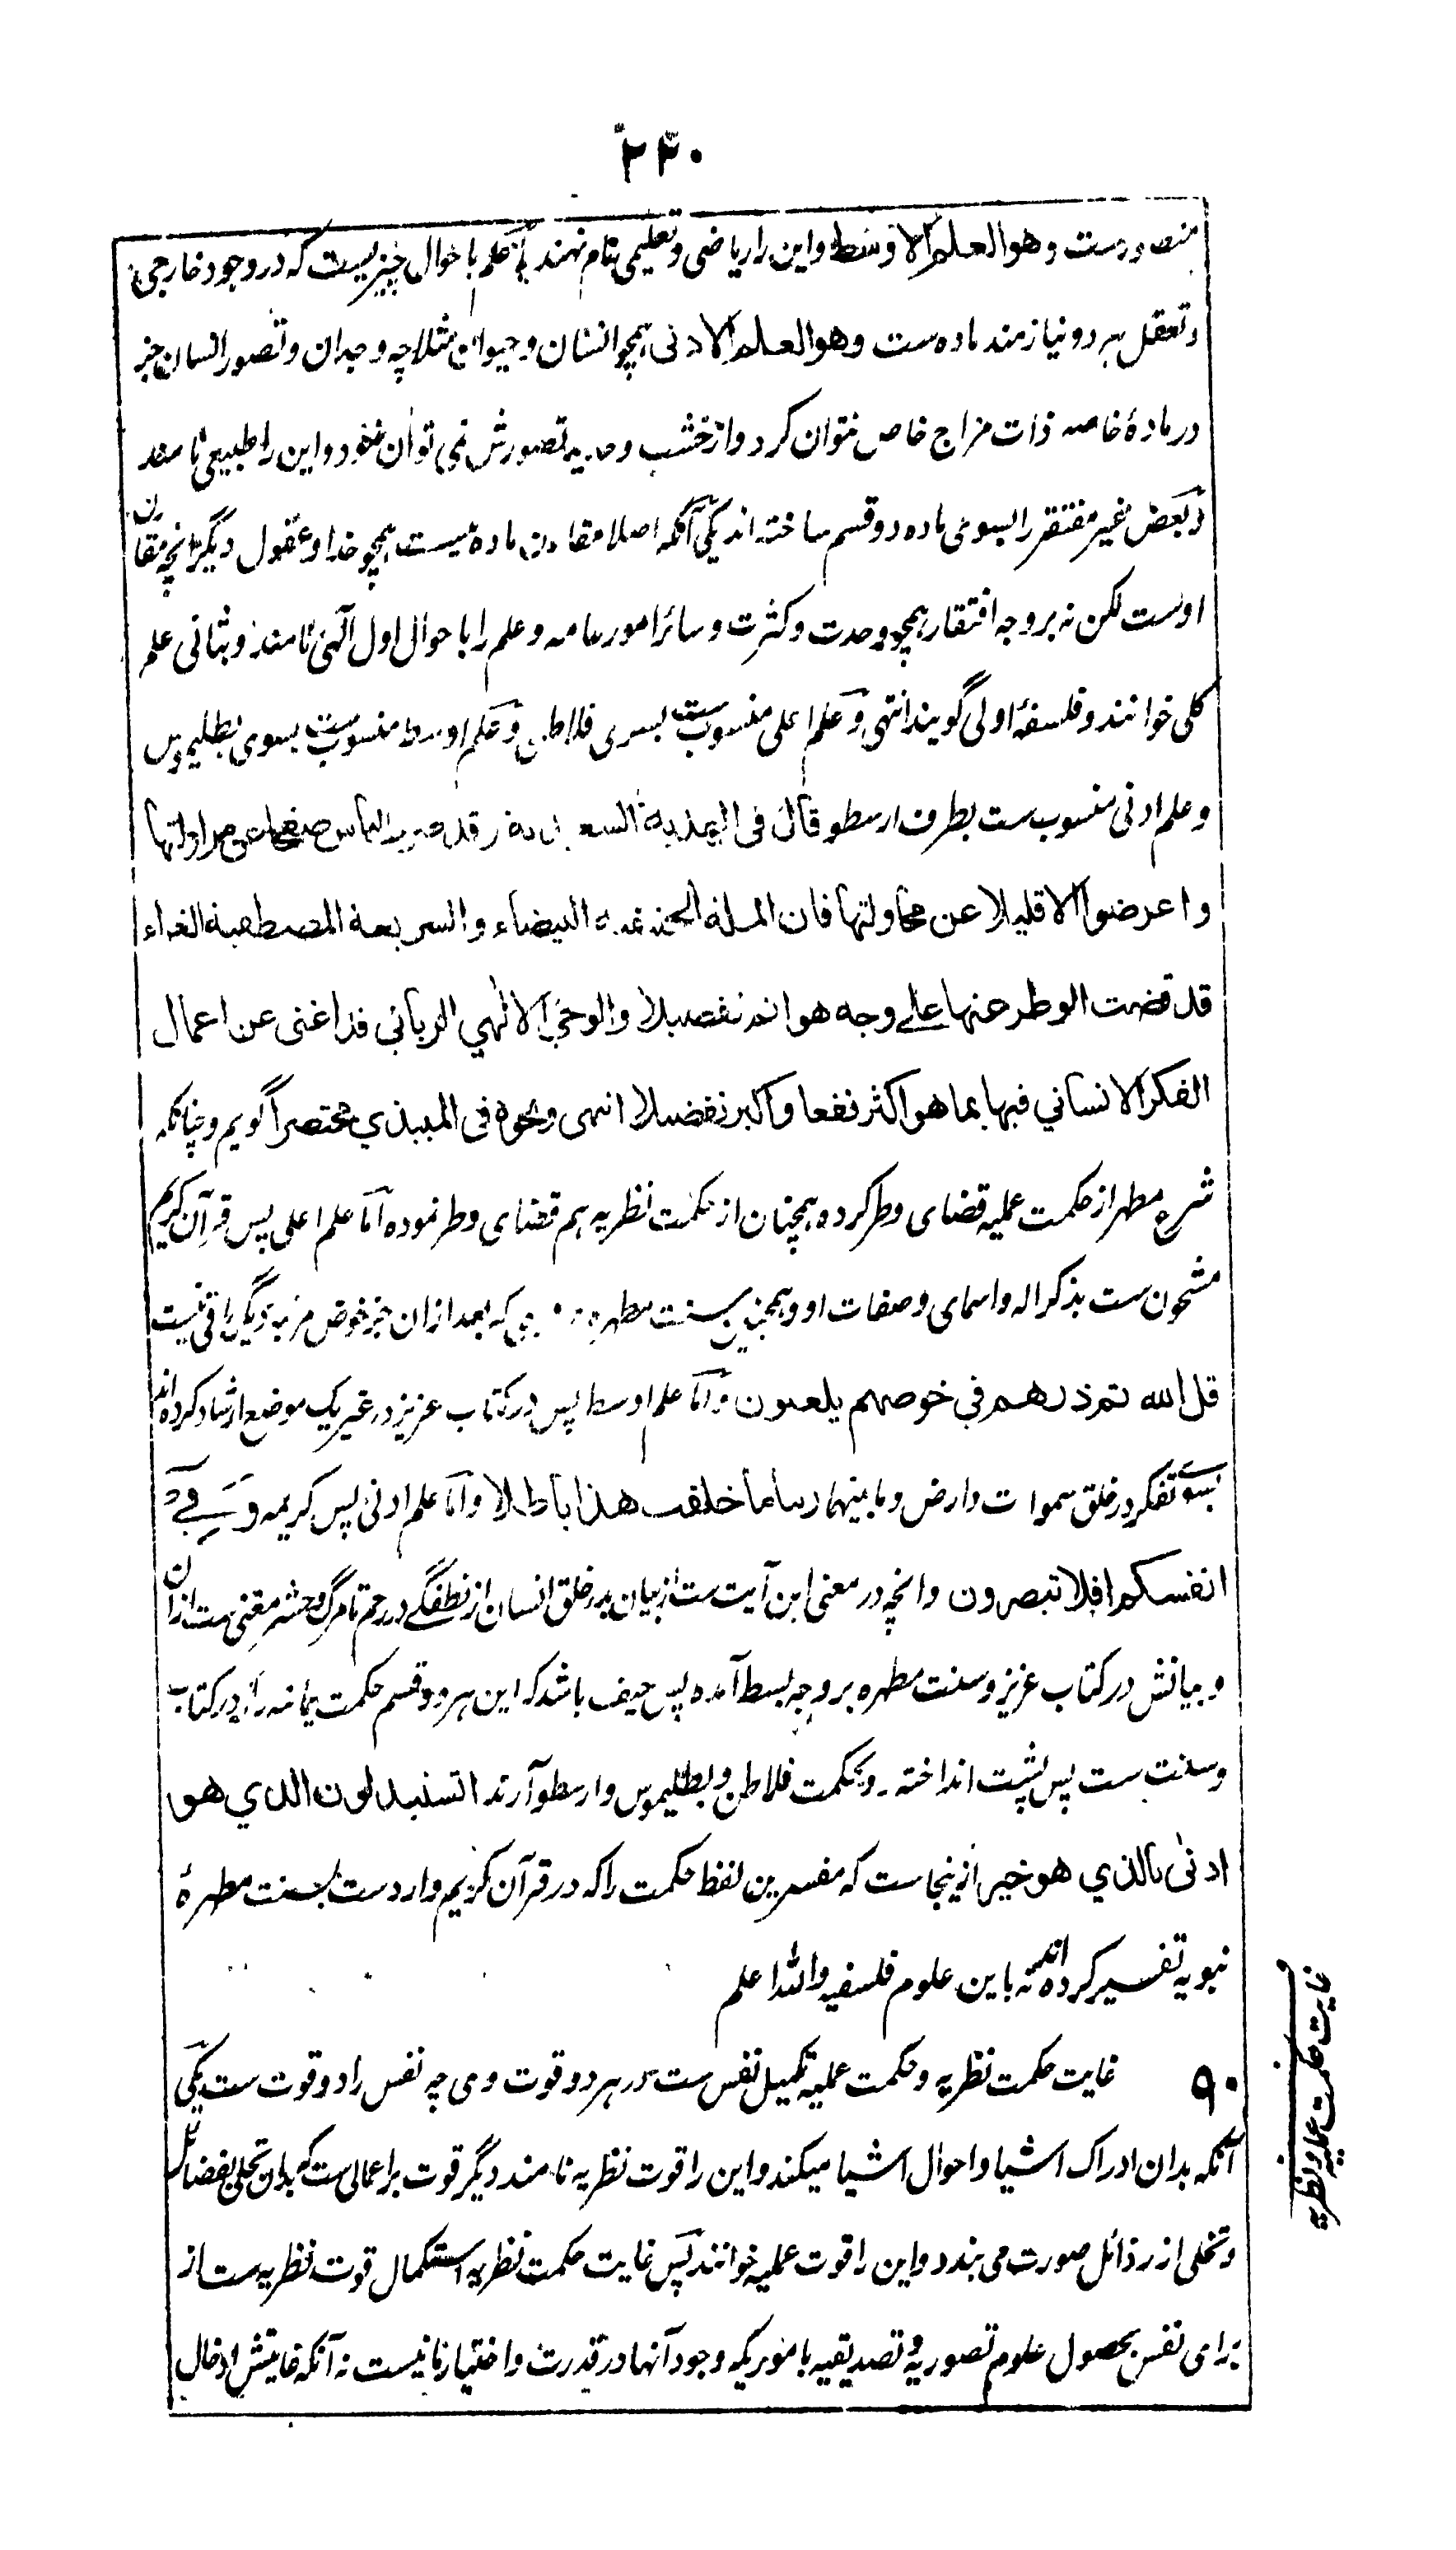 ۲۴۰
متصورست وهو العلم الاوسط واین را ریاضی و تعلیمی نام نهند یا علم باحوال چیزیست که در وجود خارجی
و تعقل هر دو نیازمند ماده ست وهو العلم الادنی همچو انسان و حیوان مثلا چه وجدان و تصور انسان جز
در مادهٔ خاصه ذات مزاج خاص نتوان کرد و از خشب و حدید تصورش نمی توان نمود و این را طبیعی نامند
و بعض غیر مفتقر را بسوی ماده دو قسم ساخته اند یکی آنکه اصلا مقارن ماده نیست همچو خدا و عقول دیگر آنچه مقارن
اوست لکن نه بر وجه افتقار همچو وحدت و کثرت و سائر امور عامه و علم را باحوال اول الهی نامند و بثانی علم
کلی خوانند و فلسفهٔ اولی گویند انتهی و علم اعلی منسوب ست بسوی فلاطن و علم اوسط منسوب ست بسوی بطلیموس
و علم ادنی منسوب ست بطرف ارسطو قال فی الهدیة السعیدیة وقد ضرب الناس صفحا عن مزاولتها
واعرضوا الا قلیلا عن محاولتها فان الملة الحنیفیة البیضاء والشریعة المصطفویة الغراء
قد قضت الوطر عنها علی وجه هو اتم تفصیلا والوحی الالهی الربانی قد اغنی عن اعمال
الفکر الانسانی فیها بما هو اکثر نفعا واکبر تفضیلا انتهی ونحوه فی المیبذی مختصرا گویم و چنانکه
شرع مطهر از حکمت عملیه قضای وطر کرده همچنان از حکمت نظریه هم قضای وطر نموده اما علم اعلی پس قرآن کریم
مشحون ست بذکر اله و اسمای و صفات او و همچنین سنت مطهره که بعد ازان جز خوض مزیه دیگر باقی نیست
قل الله ثم ذرهم فی خوضهم یلعبون و اما علم اوسط پس در کتاب عزیز در غیر یک موضع ارشاد کرده اند
بسوی تفکر در خلق سموات و ارض و ما بینهما ربنا ما خلقت هذا باطلا و اما علم ادنی پس کریمه وفی
انفسکم افلا تبصرون و آنچه در معنی این آیت ست از بیان بدء خلق انسان از نطفگی در رحم تا مرگ و حشر مغنی ست ازان
و بیانش در کتاب عزیز و سنت مطهره بر وجه بسط آمده پس حیف باشد که این هر دو قسم حکمت یمانیه را که در کتاب
و سنت ست پس پشت انداخته رو بحکمت فلاطن و بطلیموس و ارسطو آرند اتستبدلون الذی هو
ادنی بالذی هو خیر ازینجاست که مفسرین لفظ حکمت را که در قرآن کریم وارد ست بسنت مطهرهٔ
نبویه تفسیر کرده اند نه باین علوم فلسفیه والله اعلم
۹۰ غایت حکمت نظریه و حکمت عملیه تکمیل نفس ست در هر دو قوت وی چه نفس را دو قوت ست یکی
آنکه بدان ادراک اشیا و احوال اشیا میکند و این را قوت نظریه نامند دیگر قوت بر اعمالی ست که بدان تحلی بفضائل
و تخلی از رذائل صورت می بندد و این را قوت عملیه خوانند پس غایت حکمت نظریه استکمال قوت نظریه ست از
برای نفس بحصول علوم تصوریه و تصدیقیه باموریکه وجود آنها در قدرت و اختیار ما نیست نه آنکه غایتش ادخال
غایت حکمت عملیه و نظریه